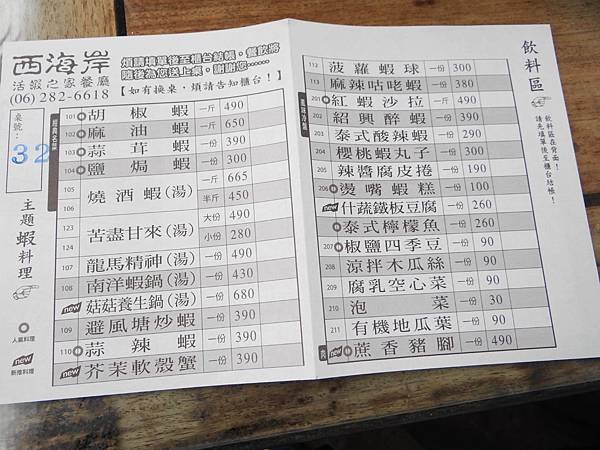 西海岸
活蝦之家餐廳
(06) 282-6618
煩請填單後至櫃台結帳，餐飲將
隨後為您送上桌，謝謝您……
【如有換桌，煩請告知櫃台！】
桌號：
32
主題蝦料理
人氣料理
new
新推料理
經典名蝦
101 胡椒蝦 一斤 490
102 麻油蝦 一斤 650
103 蒜茸蝦 一份 390
104 鹽焗蝦 一份 300
105 燒酒蝦(湯) 一斤 665
106 半斤 450
123 苦盡甘來(湯) 大份 490
124 小份 280
107 龍馬精神(湯) 一份 490
108 南洋蝦鍋(湯) 一份 430
new 菇菇養生鍋(湯) 一份 680
109 避風塘炒蝦 一份 390
110 蒜辣蝦 一份 390
new 芥茉軟殼蟹 一份 390
112 菠蘿蝦球 一份 300
113 麻辣咕咾蝦 一份 380
201 紅蝦沙拉 一斤 490
202 紹興醉蝦 一份 390
203 泰式酸辣蝦 一份 290
204 櫻桃蝦丸子 一份 300
205 辣醬腐皮捲 一份 190
206 燙嘴蝦糕 一份 100
new 什蔬鐵板豆腐 一份 260
泰式檸檬魚 一份 260
207 椒鹽四季豆 一份 90
208 涼拌木瓜絲 一份 90
209 腐乳空心菜 一份 90
210 泡菜 一份 30
211 有機地瓜葉 一份 90
new 蔗香豬腳 一份 490
飲料區
飲料區在背面！
請先填單後至櫃台結帳！